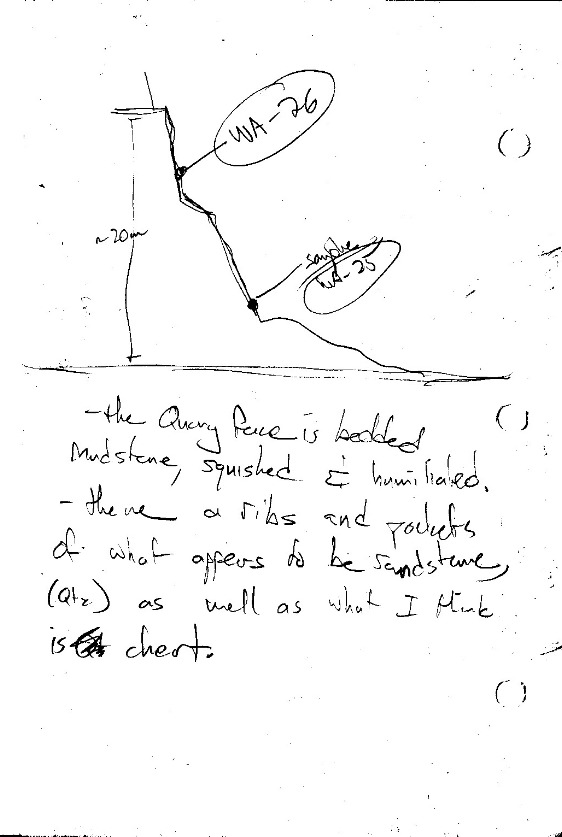 WA-26
~20m
sample
WA-25
- the Quarry face is bedded
Mudstone, squished & humiliated.
- there a ribs and pockets
of what appers to be sandstone,
(Qtz) as well as what I think
is chert.